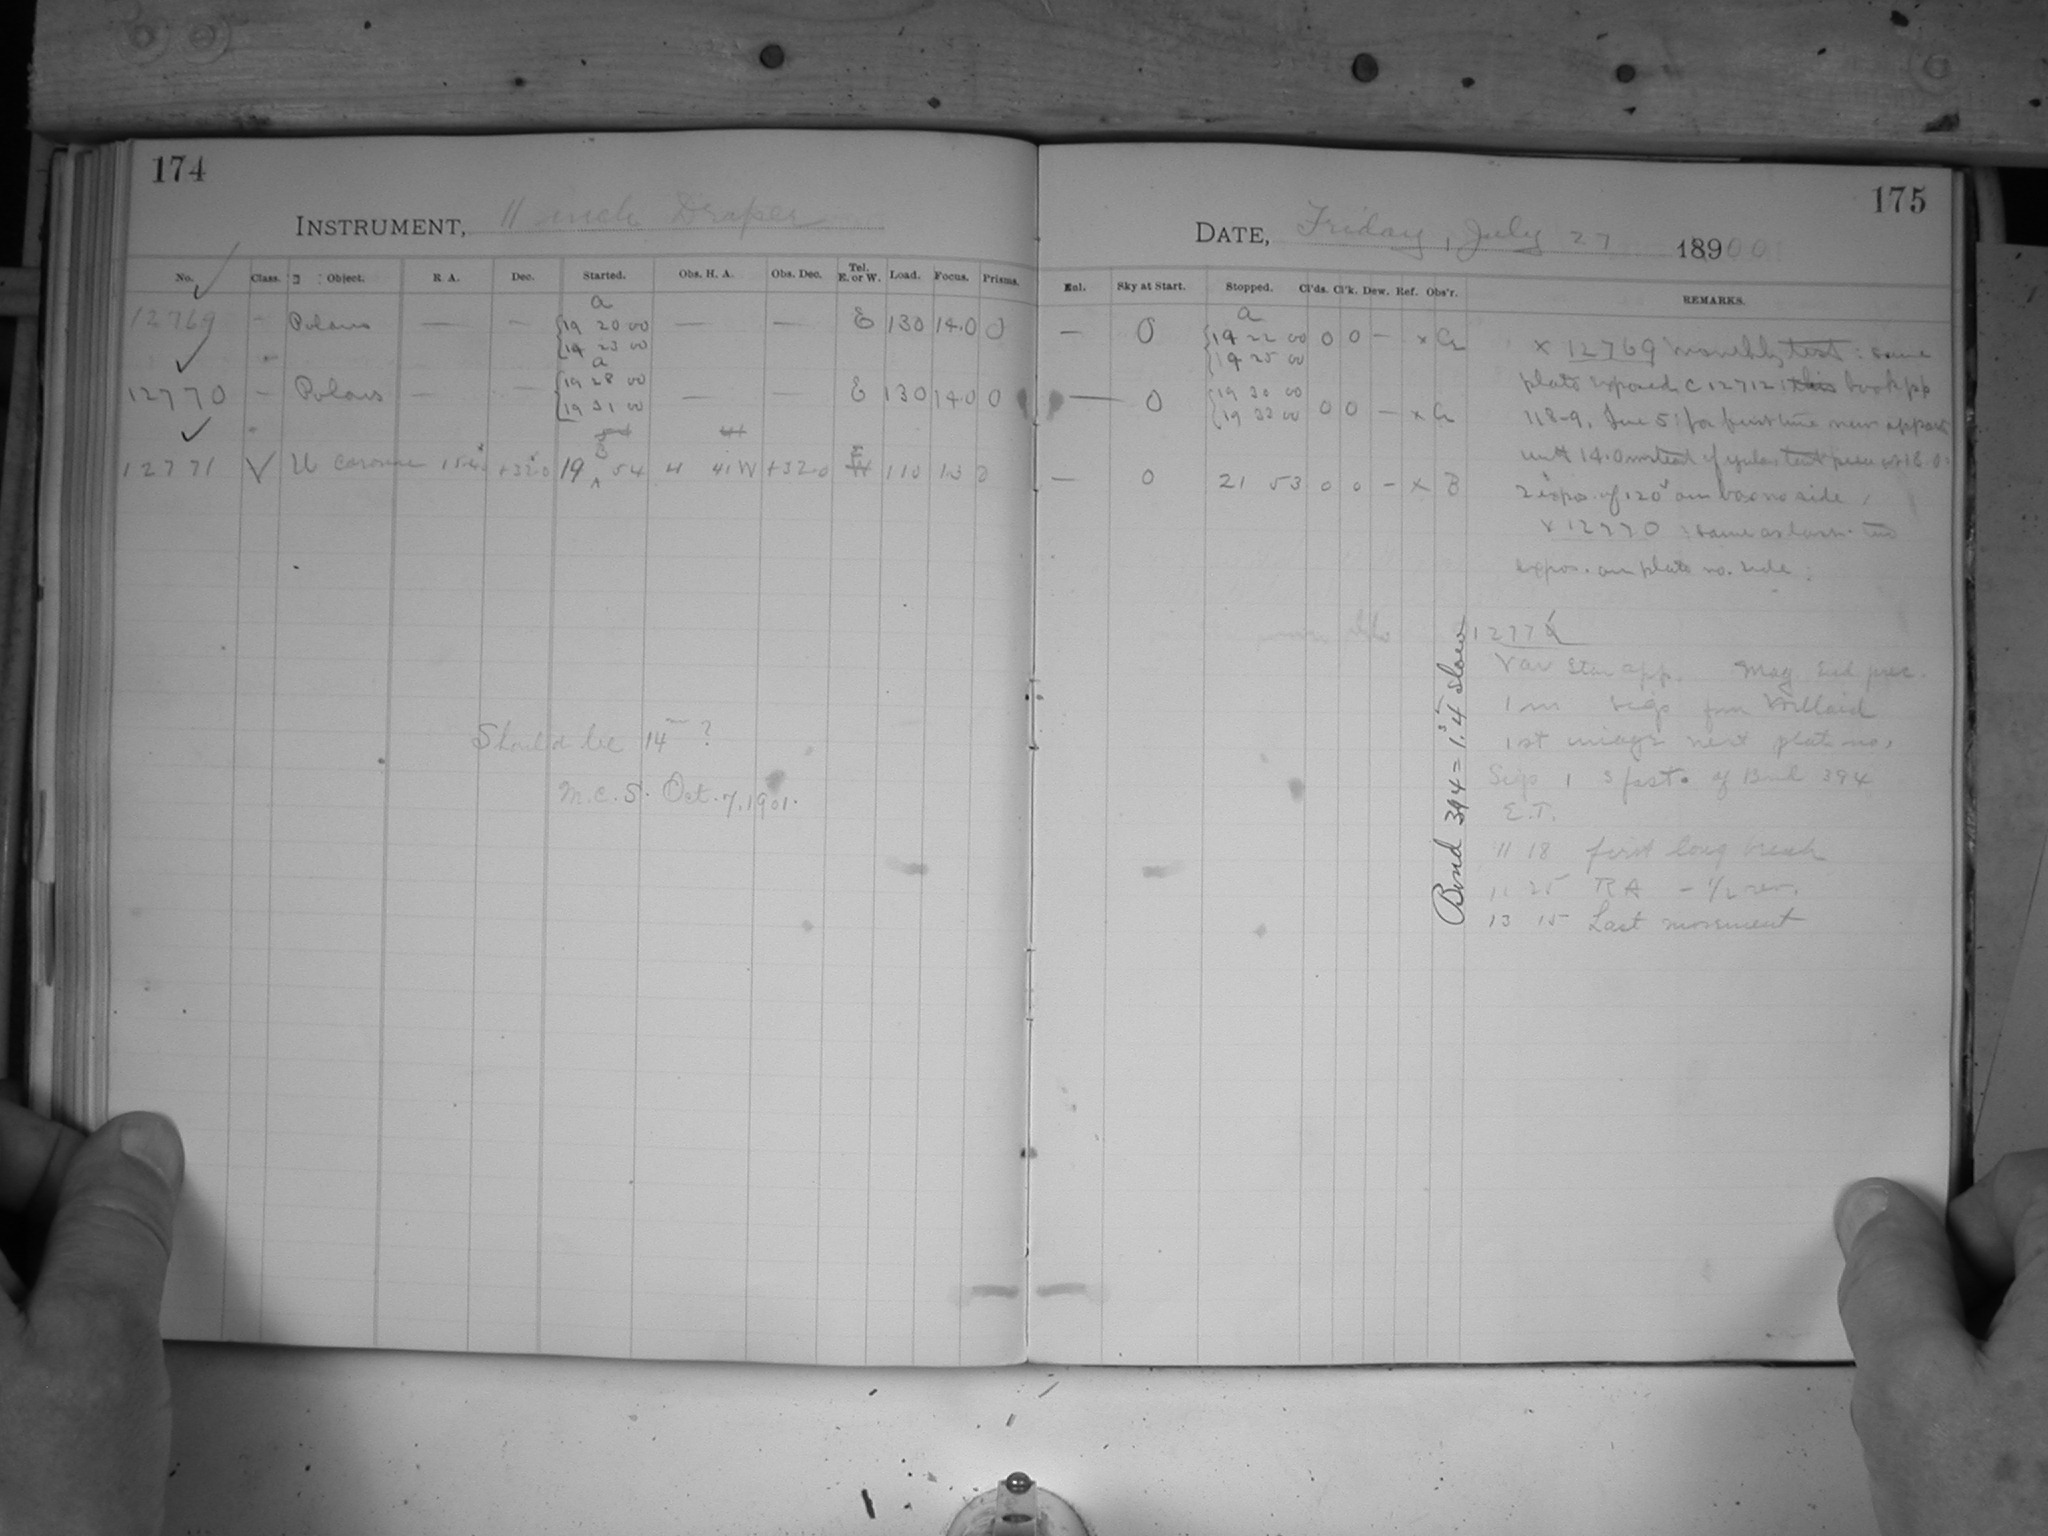 174
INSTRUMENT, 11 inch Draper
No. Class. Object. R. A. Dec. Started. Obs. H. A. Obs. Dec. Tel. E. or W. Load. Focus. Prisms.
a
12769 — Polaris — — 19 20 00 — — E 130 14.0 0
19 23 00
a
12770 — Polaris — — 19 28 00 — — E 130 14.0 0
19 31 00
12771 V U Coronae +32.0 19 54 41 W +32.0 E 110 13 0
Should be 14 ?
M.C.S. Oct. 7, 1901.
175
DATE, Friday, July 27 18900
Sky at Start. Stopped. Cl'ds. Cl'k. Dew. Ref. Obs'r. REMARKS.
a
— 0 19 22 00 0 0 — x
19 25 00
— 0 19 30 00 0 0 — x
19 33 00
— 0 21 53 0 0 — x B
x 12769 monthly test: same
plate exposed c 12712: this book pp
118-9, June 5: for first time new
2 expos. of 120s
x 12770 : same as
expos. on plate no. side
Bond 394 = 1.4 slow
1277
Var star app. Mag. End prec.
1 m sigs from Willard
1st image next plate no.
Sigs 1 s fast of Bond 394
E.T.
11 18 first long break
11 25 RA - 1/2 rev.
13 15 Last movement